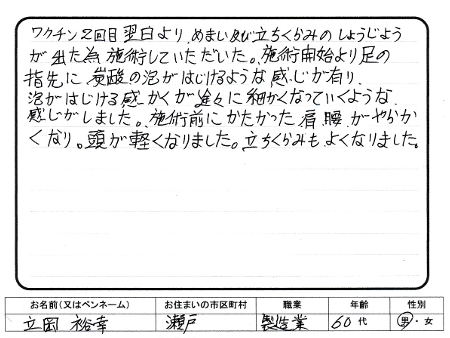 ワクチン2回目翌日より、めまい及び立ちくらみのしょうじょう
が出た為施術していただいた。施術開始より足の
指先に炭酸の泡がはじけるような感じが有り、
泡がはじける感かくが途々に細かくなっていくような
感じがしました。施術前にかたかった肩、腰、がやわらか
くなり。頭が軽くなりました。立ちくらみもよくなりました。
お名前(又はペンネーム) お住まいの市区町村 職業 年齢 性別
立岡 裕幸 瀬戸 製造業 60代 男・女